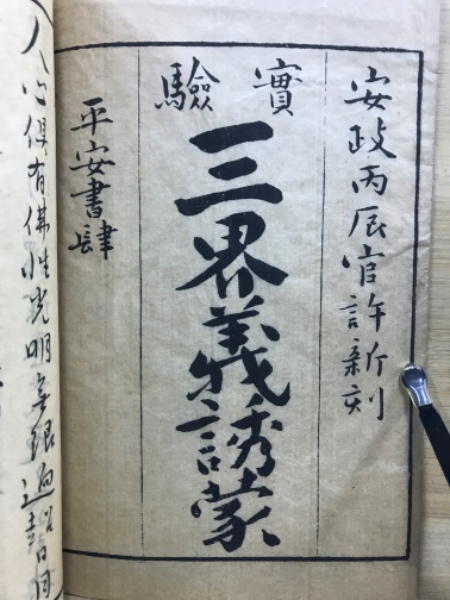 安政丙辰官許新刻
實驗
三界義誘蒙
平安書肆
人心俱有佛性光明無限